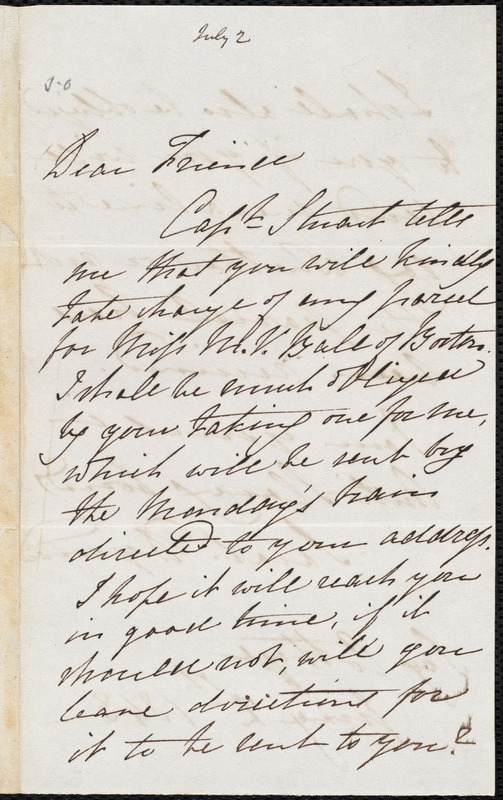 July 2
Dear Friend
Capt. Stuart tells
me that you will kindly
take charge of any parcel
for Miss M. V. Ball of Boston.
I shall be much obliged
by your taking one for me,
which will be sent by
the Monday's train
directed to your address.
I hope it will reach you
in good time, if it
should not, will you
leave directions for
it to be sent to you?